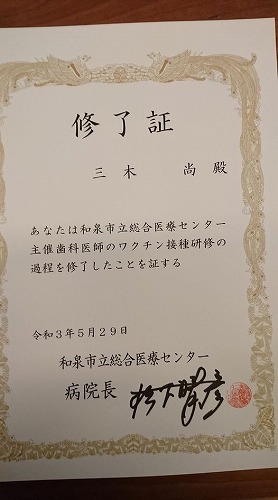 修了証
三木 尚 殿
あなたは和泉市立総合医療センター
主催歯科医師のワクチン接種研修の
過程を修了したことを証する
令和3年5月29日
和泉市立総合医療センター
病院長 松下晴彦